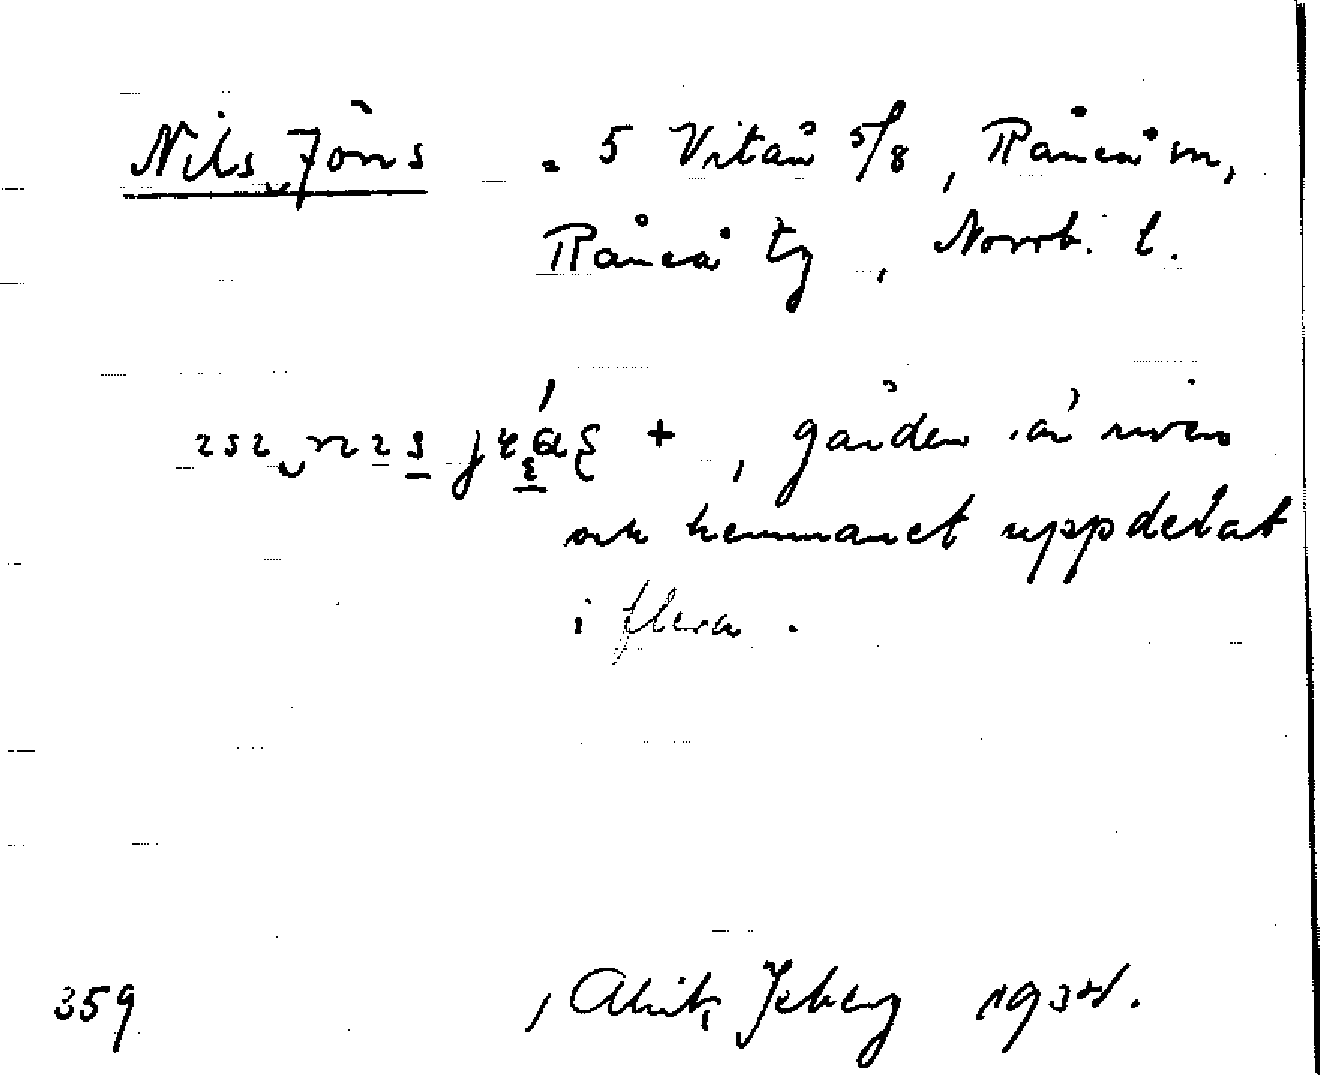 Nils Jöns = 5 Vitån 5/8, Råneå sn,
Råneå tg, Norrb. l.
+, gården är riven
och hemmanet uppdelat
i flera.
359 1934.